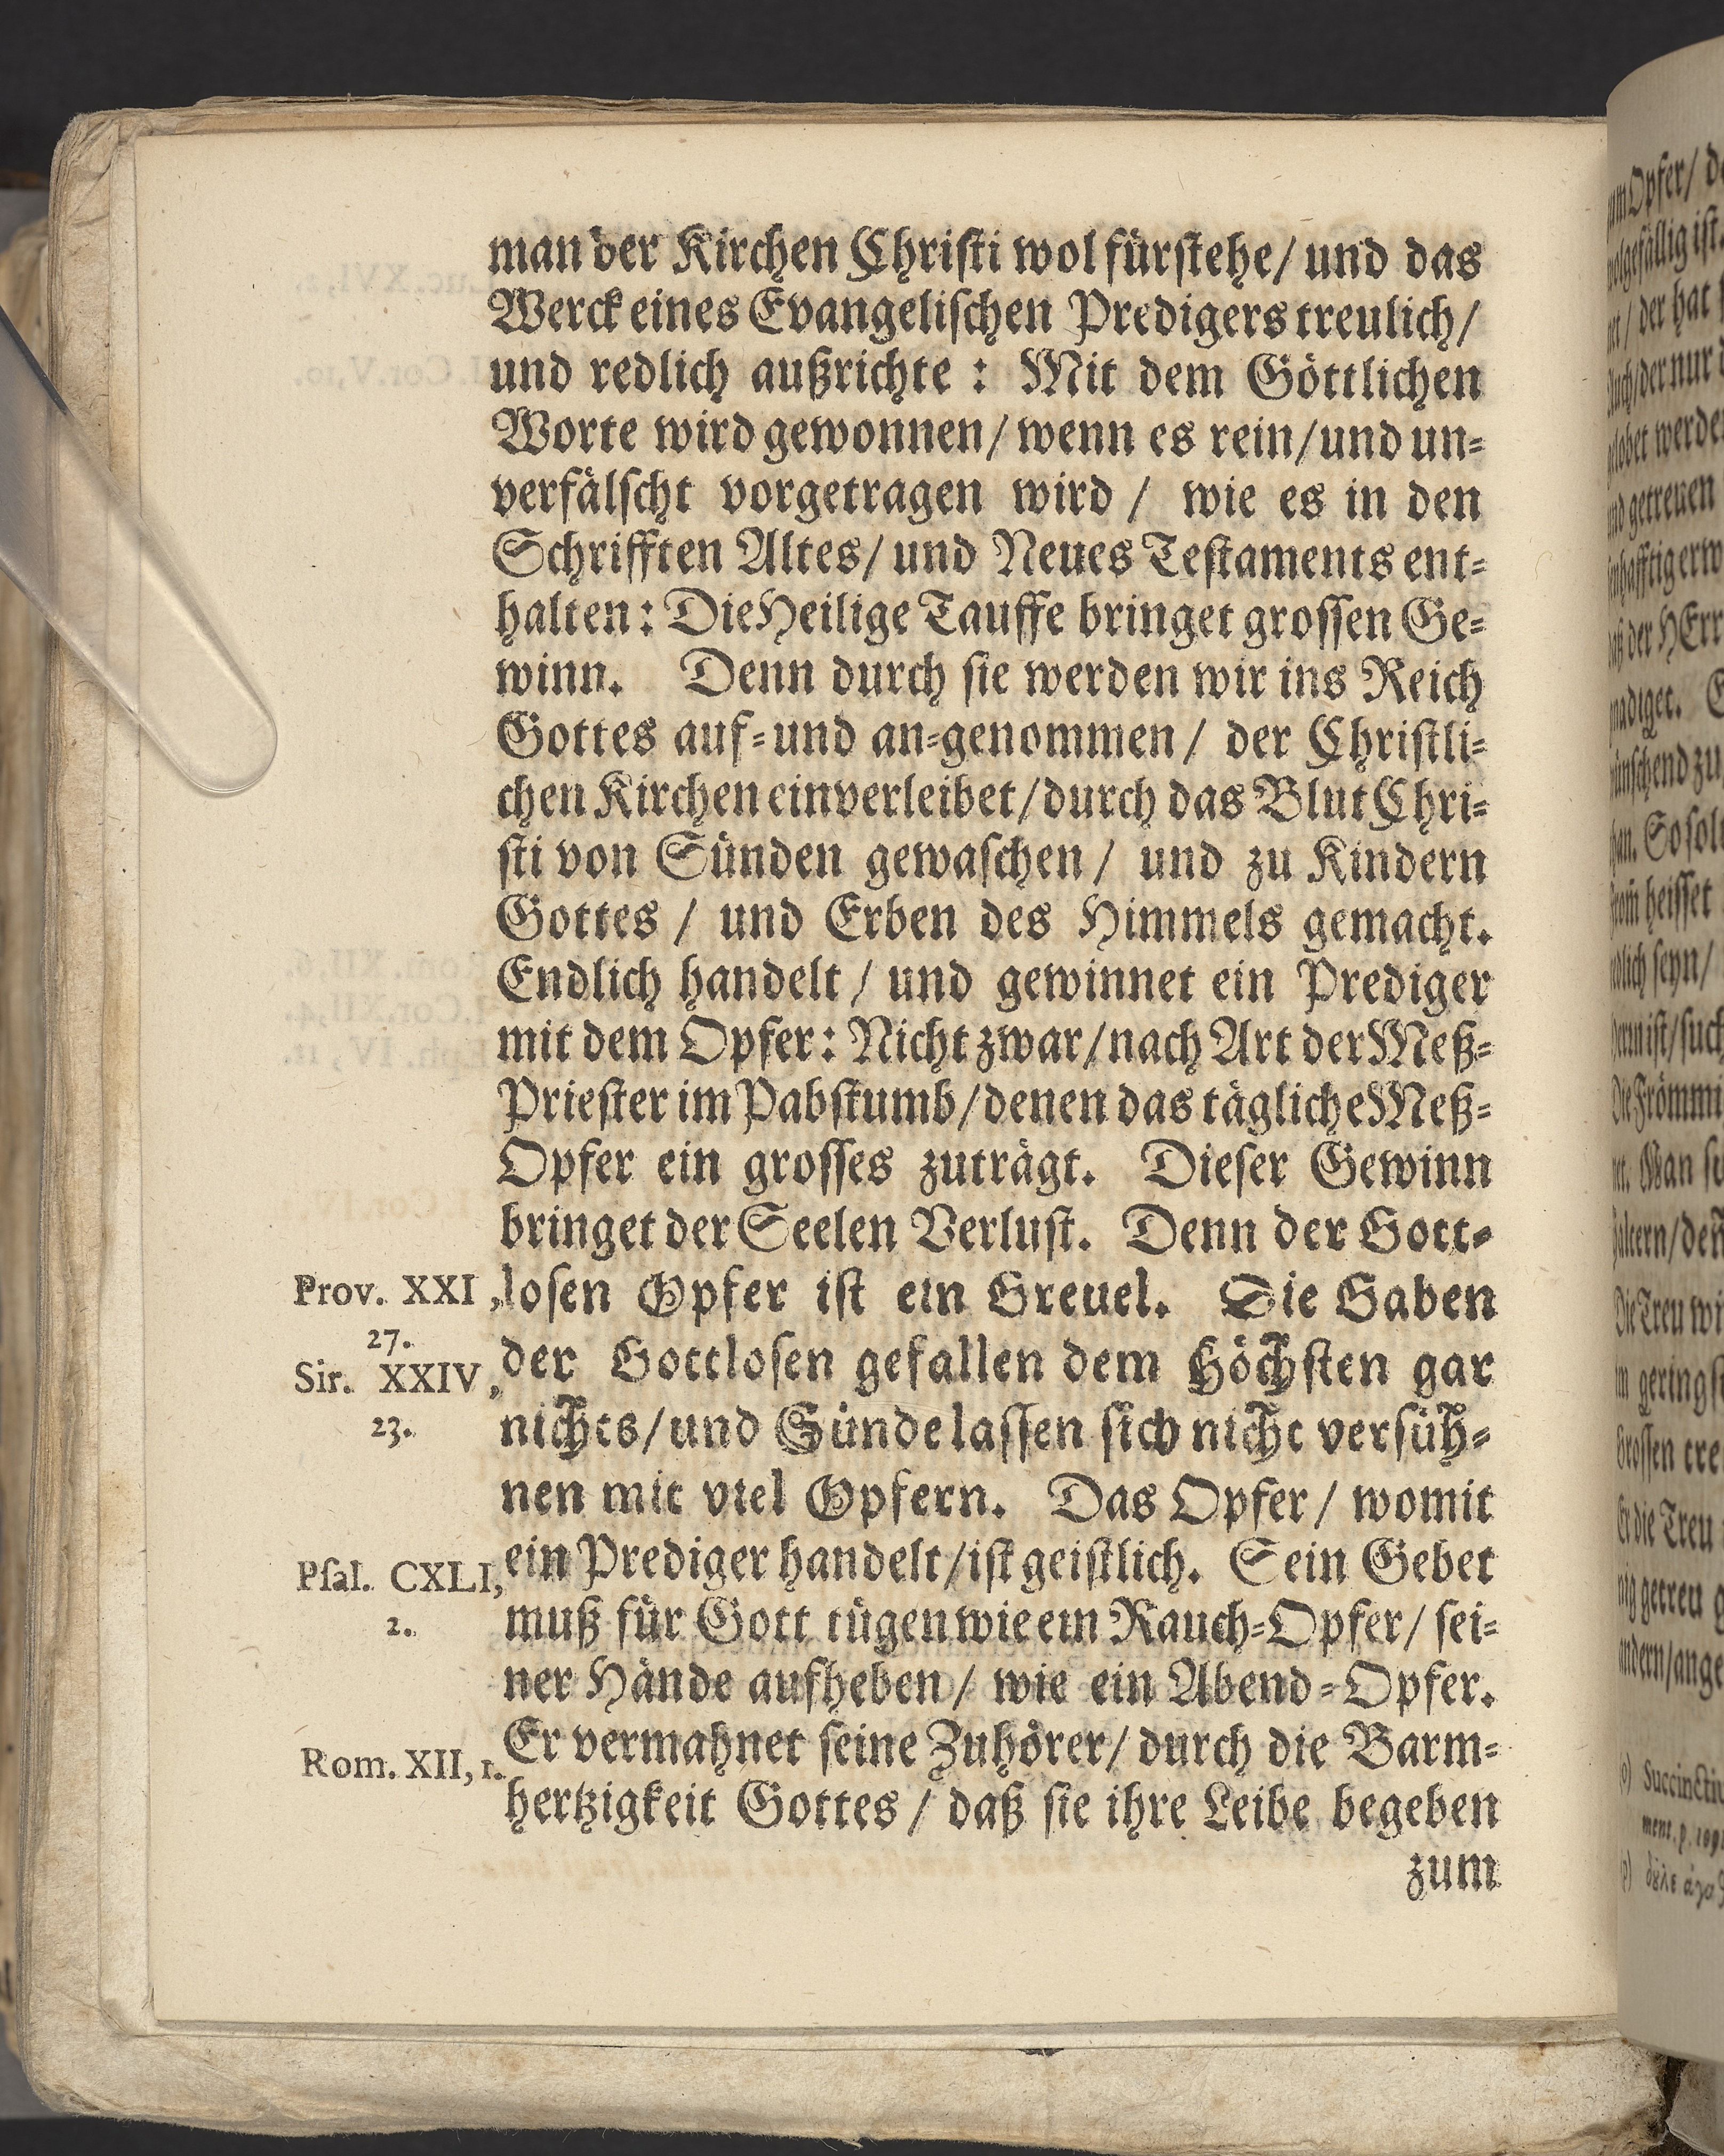 man der Kirchen Christi wol fürstehe/ und das
Werck eines Evangelischen Predigers treulich/
und redlich außrichte : Mit dem Göttlichen
Worte wird gewonnen/ wenn es rein/ und un-
verfälscht vorgetragen wird / wie es in den
Schrifften Altes/ und Neues Testaments ent-
halten: Die Heilige Tauffe bringet grossen Ge-
winn. Denn durch sie werden wir ins Reich
Gottes auf- und an-genommen/ der Christli-
chen Kirchen einverleibet/ durch das Blut Chri-
sti von Sünden gewaschen/ und zu Kindern
Gottes / und Erben des Himmels gemacht.
Endlich handelt / und gewinnet ein Prediger
mit dem Opfer: Nicht zwar/ nach Art der Meß-
Priester im Pabstumb/ denen das tägliche Meß-
Opfer ein grosses zuträgt. Dieser Gewinn
bringet der Seelen Verlust. Denn der Gott-
Prov. XXI,
27.
losen Opfer ist ein Greuel. Die Gaben
Sir. XXIV,
23.
der Gottlosen gefallen dem Höchsten gar
nichts/ und Sünde lassen sich nicht versüh-
nen mit viel Opfern. Das Opfer/ womit
Psal. CXLI,
2.
ein Prediger handelt/ ist geistlich. Sein Gebet
muß für Gott tügen wie ein Rauch-Opfer/ sei-
ner Hände aufheben/ wie ein Abend-Opfer.
Rom. XII, 1.
Er vermahnet seine Zuhörer/ durch die Barm-
hertzigkeit Gottes / daß sie ihre Leibe begeben
zum